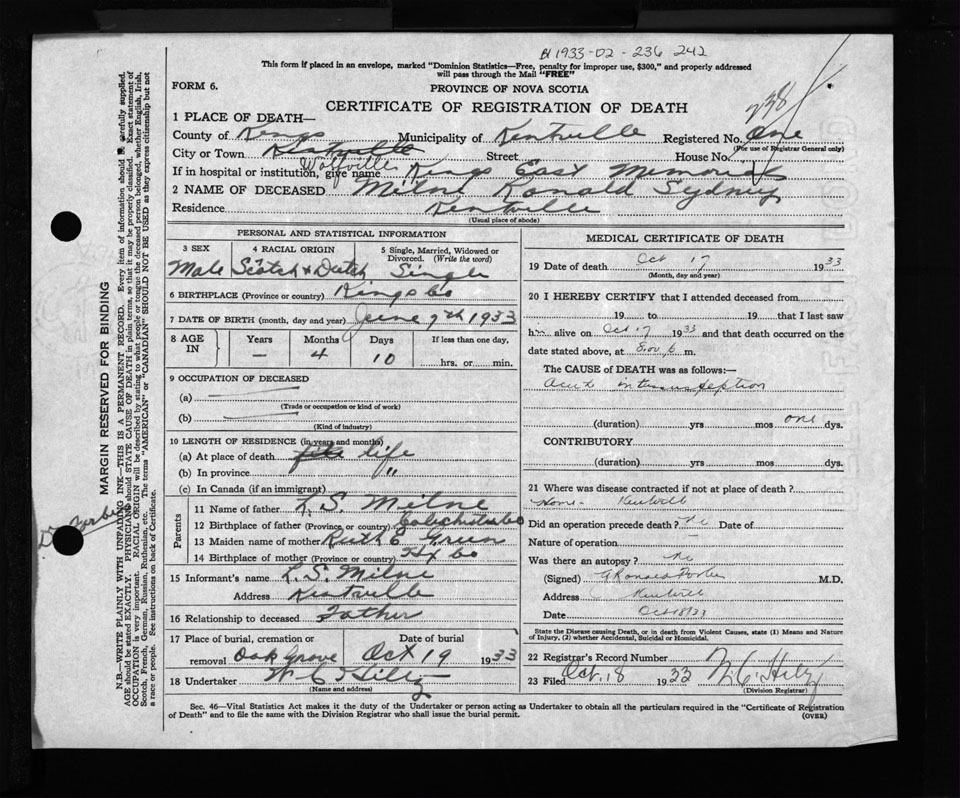 1933-02-236 242
This form if placed in an envelope, marked "Dominion Statistics—Free, penalty for improper use, $300," and properly addressed
will pass through the Mail "FREE"
238
FORM 6.
PROVINCE OF NOVA SCOTIA
CERTIFICATE OF REGISTRATION OF DEATH
1 PLACE OF DEATH—
County of Kings Municipality of Kentville Registered No. One
(For use of Registrar General only)
City or Town Kentville Wolfville Street House No.
If in hospital or institution, give name Kings East Memorial
2 NAME OF DECEASED Milne Ronald Sydney
Residence Kentville
(Usual place of abode)
PERSONAL AND STATISTICAL INFORMATION
3 SEX 4 RACIAL ORIGIN 5 Single, Married, Widowed or Divorced. (Write the word)
Male Scotch & Dutch Single
6 BIRTHPLACE (Province or country) Kings Co
7 DATE OF BIRTH (month, day and year) June 7th 1933
8 AGE IN Years Months Days If less than one day,
— 4 10 hrs. or min.
9 OCCUPATION OF DECEASED
(a)
(Trade or occupation or kind of work)
(b)
(Kind of industry)
10 LENGTH OF RESIDENCE (in years and months)
(a) At place of death life
(b) In province "
(c) In Canada (if an immigrant)
Parents
11 Name of father L. S. Milne
12 Birthplace of father (Province or country) Colechester Co
13 Maiden name of mother Ruth E Green
14 Birthplace of mother (Province or country) Hx Co
15 Informant's name L. S. Milne
Address Kentville
16 Relationship to deceased Father
17 Place of burial, cremation or removal Oak Grove Date of burial Oct 19 1933
18 Undertaker W. C. Hiltz
(Name and address)
MEDICAL CERTIFICATE OF DEATH
19 Date of death Oct 17 1933
(Month, day and year)
20 I HEREBY CERTIFY that I attended deceased from
19 to 19 that I last saw
h alive on Oct 17 1933 and that death occurred on
date stated above, at 8.00 m.
The CAUSE of DEATH was as follows:—
acute intussuseption
(duration) yrs mos one dys.
CONTRIBUTORY
(duration) yrs mos dys.
21 Where was disease contracted if not at place of death?
Home - Kentville
Did an operation precede death? No Date of
Nature of operation —
Was there an autopsy? No
(Signed) M.D.
Address Kentville
Date Oct 18/33
State the Disease causing Death, or in death from Violent Causes, state (1) Means and Nature
of Injury, (2) whether Accidental, Suicidal or Homicidal.
22 Registrar's Record Number
23 Filed Oct. 18 1933 W. C. Hiltz
(Division Registrar)
Sec. 46—Vital Statistics Act makes it the duty of the Undertaker or person acting as Undertaker to obtain all the particulars required in the "Certificate of Registration
of Death" and to file the same with the Division Registrar who shall issue the burial permit.
(OVER)
MARGIN RESERVED FOR BINDING
N.B.—WRITE PLAINLY WITH UNFADING INK—THIS IS A PERMANENT RECORD. Every item of information should be carefully supplied.
AGE should be stated EXACTLY. PHYSICIANS should STATE CAUSE OF DEATH in plain terms, so that it may be properly classified. Exact statement of
OCCUPATION is very important. RACIAL ORIGIN will be described by stating to what people or tongue the deceased person belonged, whether English, Irish,
Scotch, French, German, Russian, Ruthenian, etc. The terms "AMERICAN" or "CANADIAN" SHOULD NOT BE USED as they express citizenship but not
a race or people. See instructions on back of Certificate.